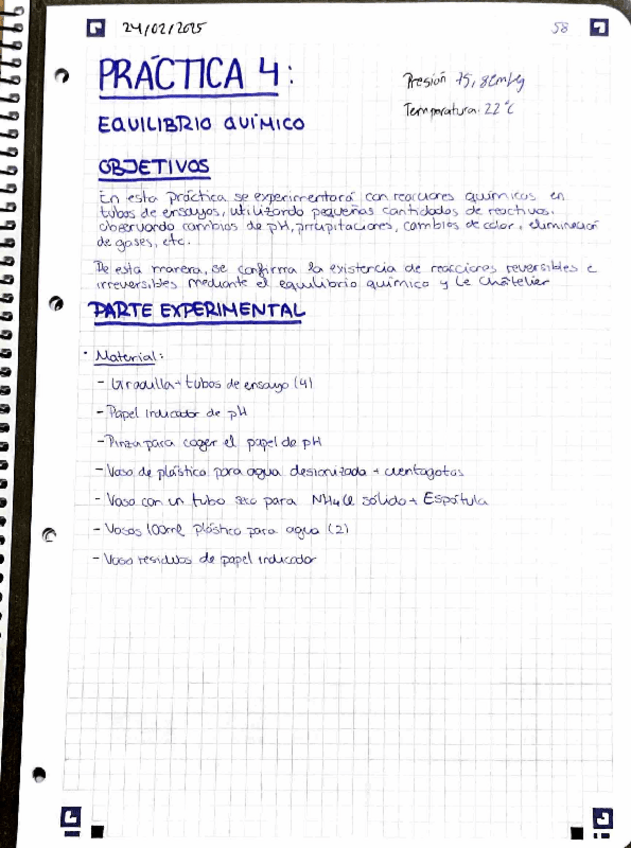 24/02/2025
58
PRÁCTICA 4:
Presión 75,8cmHg
Temperatura: 22°C
EQUILIBRIO QUÍMICO
OBJETIVOS
En esta práctica se experimentará con reacciones químicas en
tubos de ensayos, utilizando pequeñas cantidades de reactivos.
Observando cambios de pH, precipitaciones, cambios de color, eliminación
de gases, etc.
De esta manera, se confirma la existencia de reacciones reversibles e
irreversibles mediante el equilibrio químico y Le Châtelier
PARTE EXPERIMENTAL
· Material:
- Gradilla + tubos de ensayo (4)
- Papel Indicador de pH
- Pinza para coger el papel de pH
- Vaso de plástico para agua desionizada + cuentagotas
- Vaso con un tubo seco para NH4Cl sólido + Espátula
- Vasos 100ml plástico para agua (2)
- Vaso residuos de papel indicador